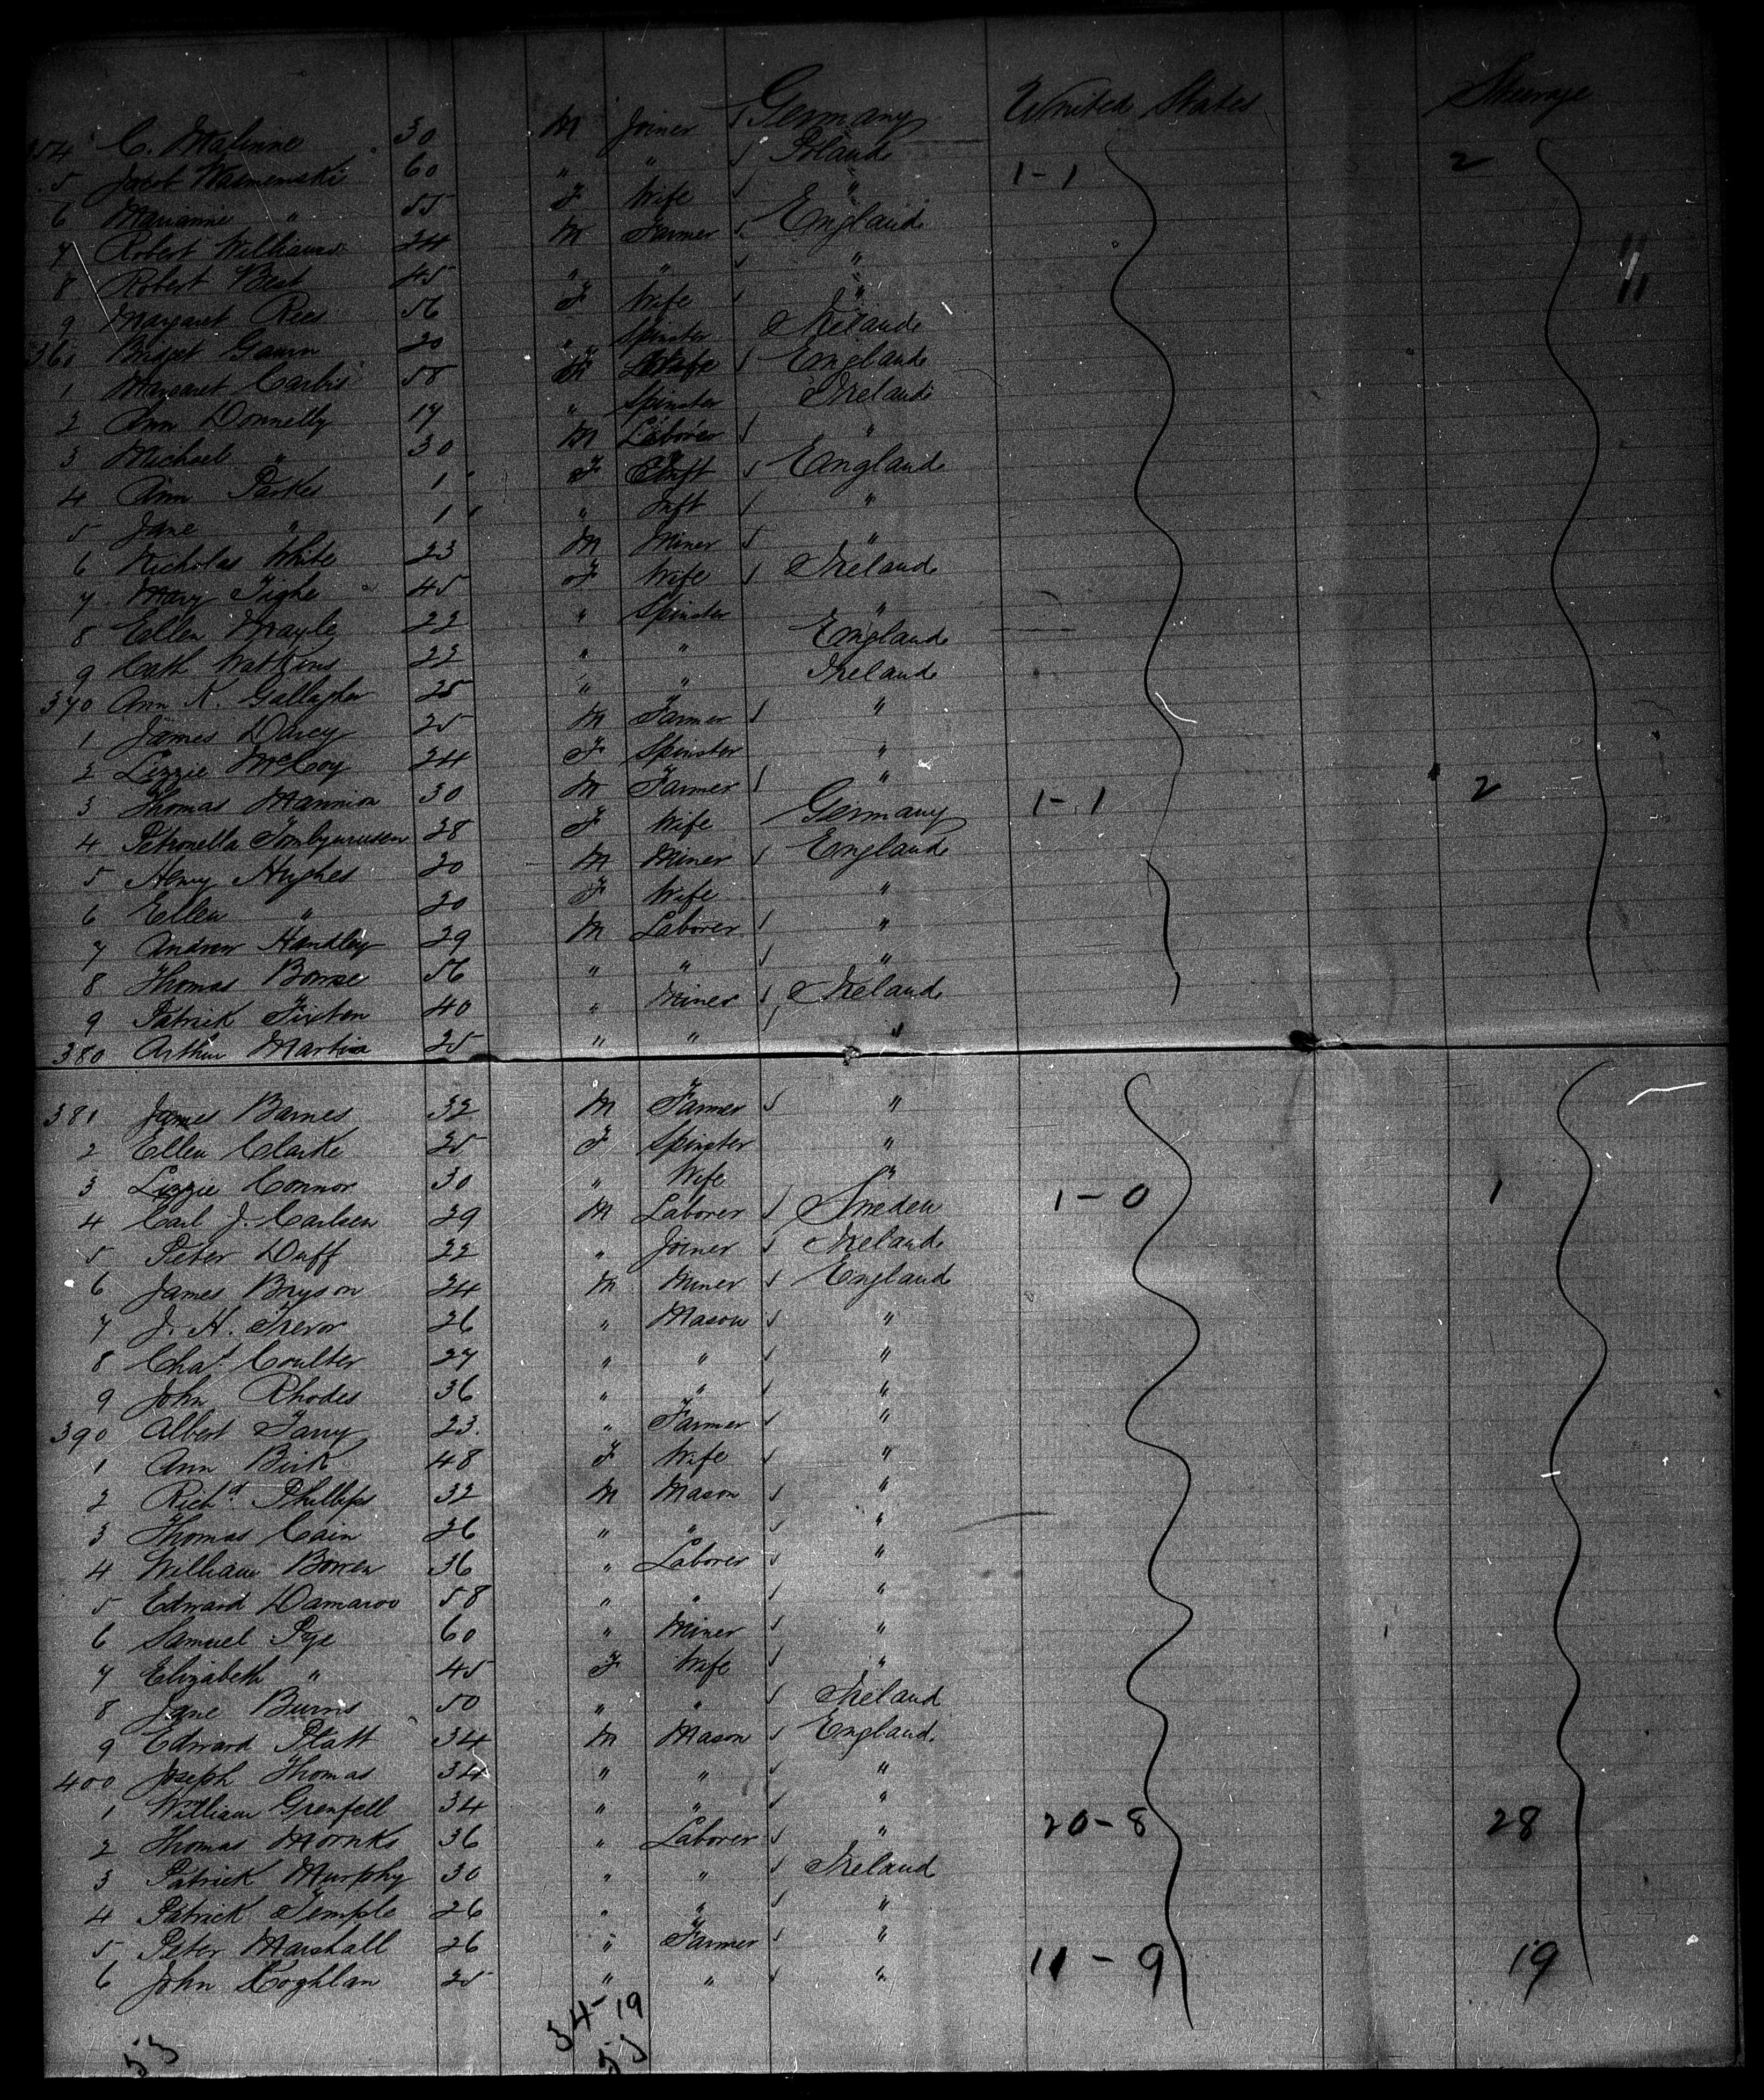 354 C. Malinne 30 M Joiner Germany United States Steerage
5 Jacob Wasmenski 60 " " Poland 1-1 2
6 Marianne " 55 F Wife "
7 Robert Williams 24 M Farmer England
8 Robert Best 45 " " "
9 Margaret Rees 56 F Wife "
360 Bridget Gavin 20 " Spinster Ireland
1 Margaret Carbis 58 Wife England
2 Ann Donnelly 17 " Spinster Ireland
3 Michael " 30 M Laborer "
4 Ann Parkes 1 F Inft England
5 Jane " 1 " Inft "
6 Nicholas White 23 M Miner "
7 Mary Tighe 45 F Wife Ireland
8 Ellen 22 " Spinster "
9 Cath Watkins 22 " " England
370 Ann K. Gallagher 25 " " Ireland
1 James Darcy 25 M Farmer "
2 Lizzie McCoy 24 F Spinster "
3 Thomas Mannion 30 M Farmer "
4 Petronella 28 F Wife Germany 1-1 2
5 Henry Hughes 20 M Miner England
6 Ellen " 20 F Wife "
7 Andrew Handley 29 M Laborer "
8 Thomas Bowse 56 " " "
9 Patrick Fixten 40 " Miner Ireland
380 Arthur Martin 25 " " "
381 James Barnes 32 M Farmer "
2 Ellen Clarke 25 F Spinster "
3 Lizzie Connor 30 " Wife "
4 Carl J. Carlsen 29 M Laborer Sweden 1-0 1
5 Peter Duff 22 " Joiner Ireland
6 James Bryson 24 M Miner England
7 J. H. Trevor 26 " Mason "
8 Chas Coulter 27 " " "
9 John Rhodes 36 " " "
390 Albert Tarry 23. " Farmer "
1 Ann Birk 48 F Wife "
2 Richd. Phillips 32 M Mason "
3 Thomas Cain 26 " " "
4 William Bowen 36 " Laborer "
5 Edward Damaroo 58 " " "
6 Samuel Pye 60 " Miner "
7 Elizabeth " 45 F Wife "
8 Jane Burns 50 " " Ireland
9 Edward Platt 34 M Mason England
400 Joseph Thomas 34 " " "
1 William Grenfell 34 " " "
2 Thomas Mornks 36 " Laborer " 20-8 28
3 Patrick Murphy 30 " " Ireland
4 Patrick Temple 26 " " "
5 Peter Marshall 26 " Farmer "
6 John Coghlan 25 " " " 11-9 19
34-19
53 53